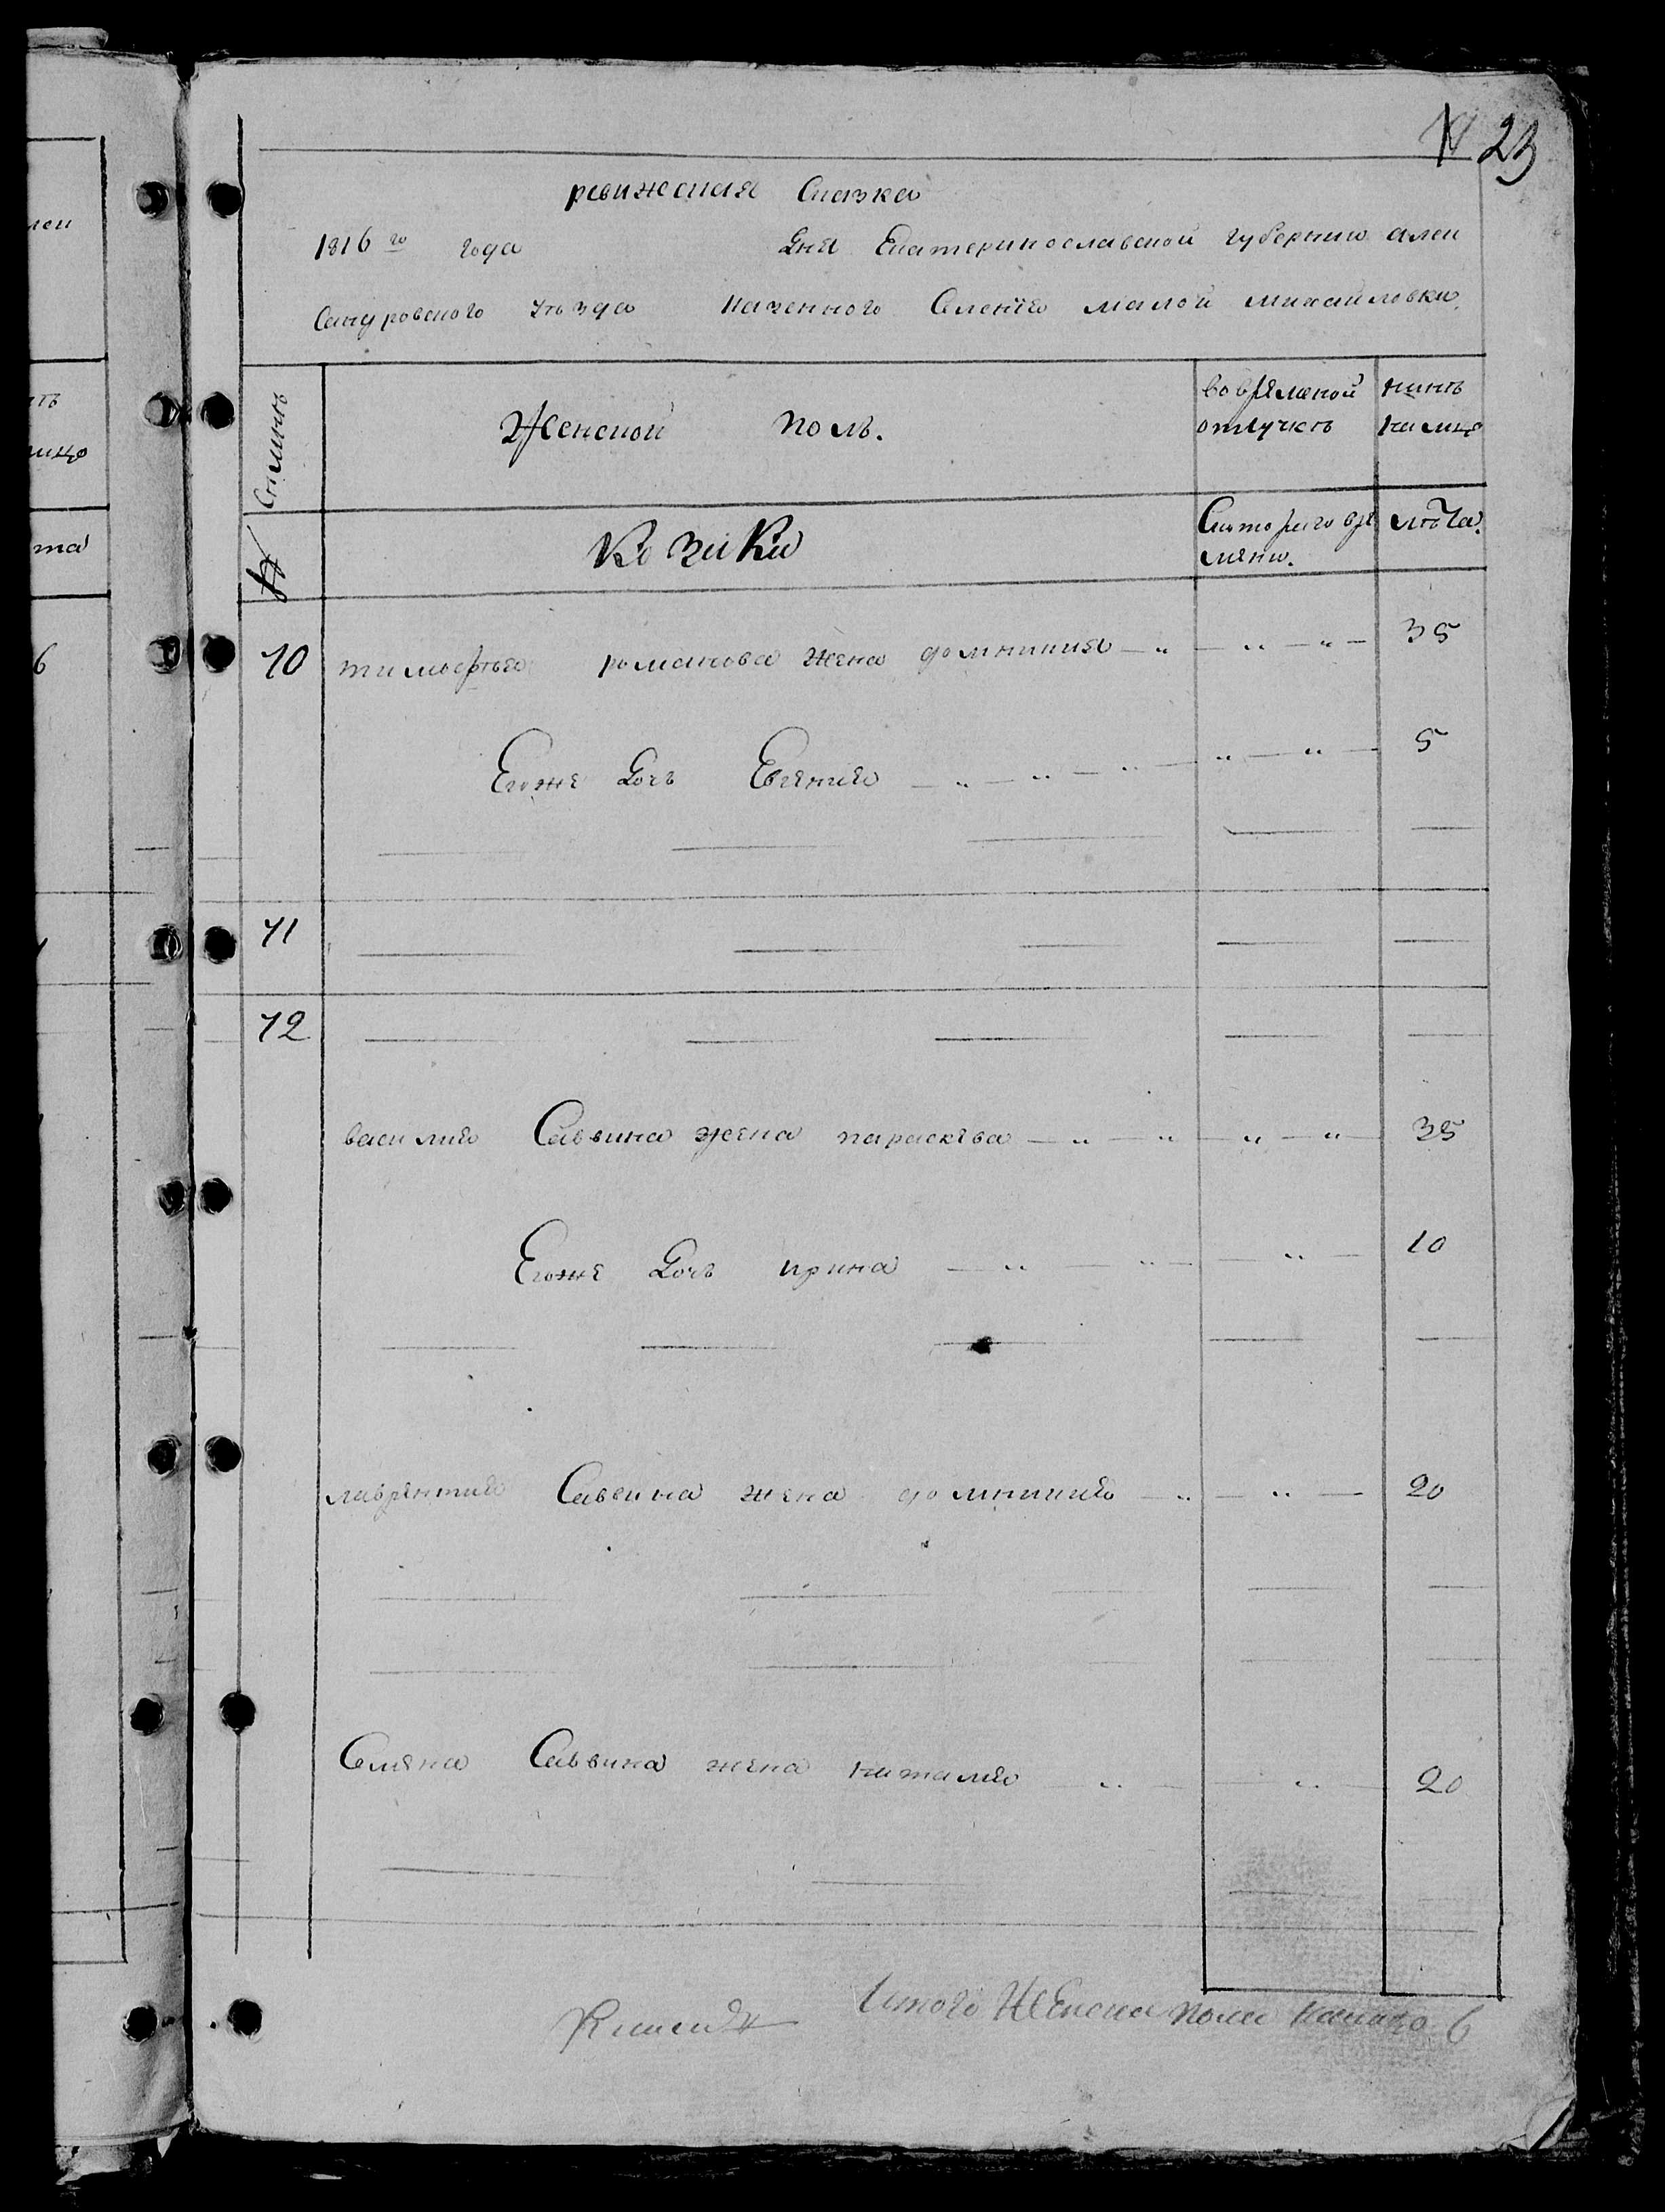 23
ревижская Сказка
1816 го года Дня Екатеринославской губернии алек
сандровского уѣзда Казенного Селенія малой михайловки
Семьи
Женской поль.
во временой отлучкѣ
нынѣ на лицо
№
Козаки
Скоторого времяни.
лѣта.
10 тимофѣя романова жена домникия — „ — „ — „ — 35
Егоже Дочь Евгения — „ — „ — „ — „ — „ — 5
11
12
василия Саввина жена параскева — „ — „ — „ — „ — 35
Егоже Дочь ирина — „ — „ — „ — 10
лаврентия Саввина жена домникия — „ — „ — 20
Семена Саввина жена наталия „ — „ — 20
Итого Женска пола налицо 6
лен
тѣ
лицо
та
6